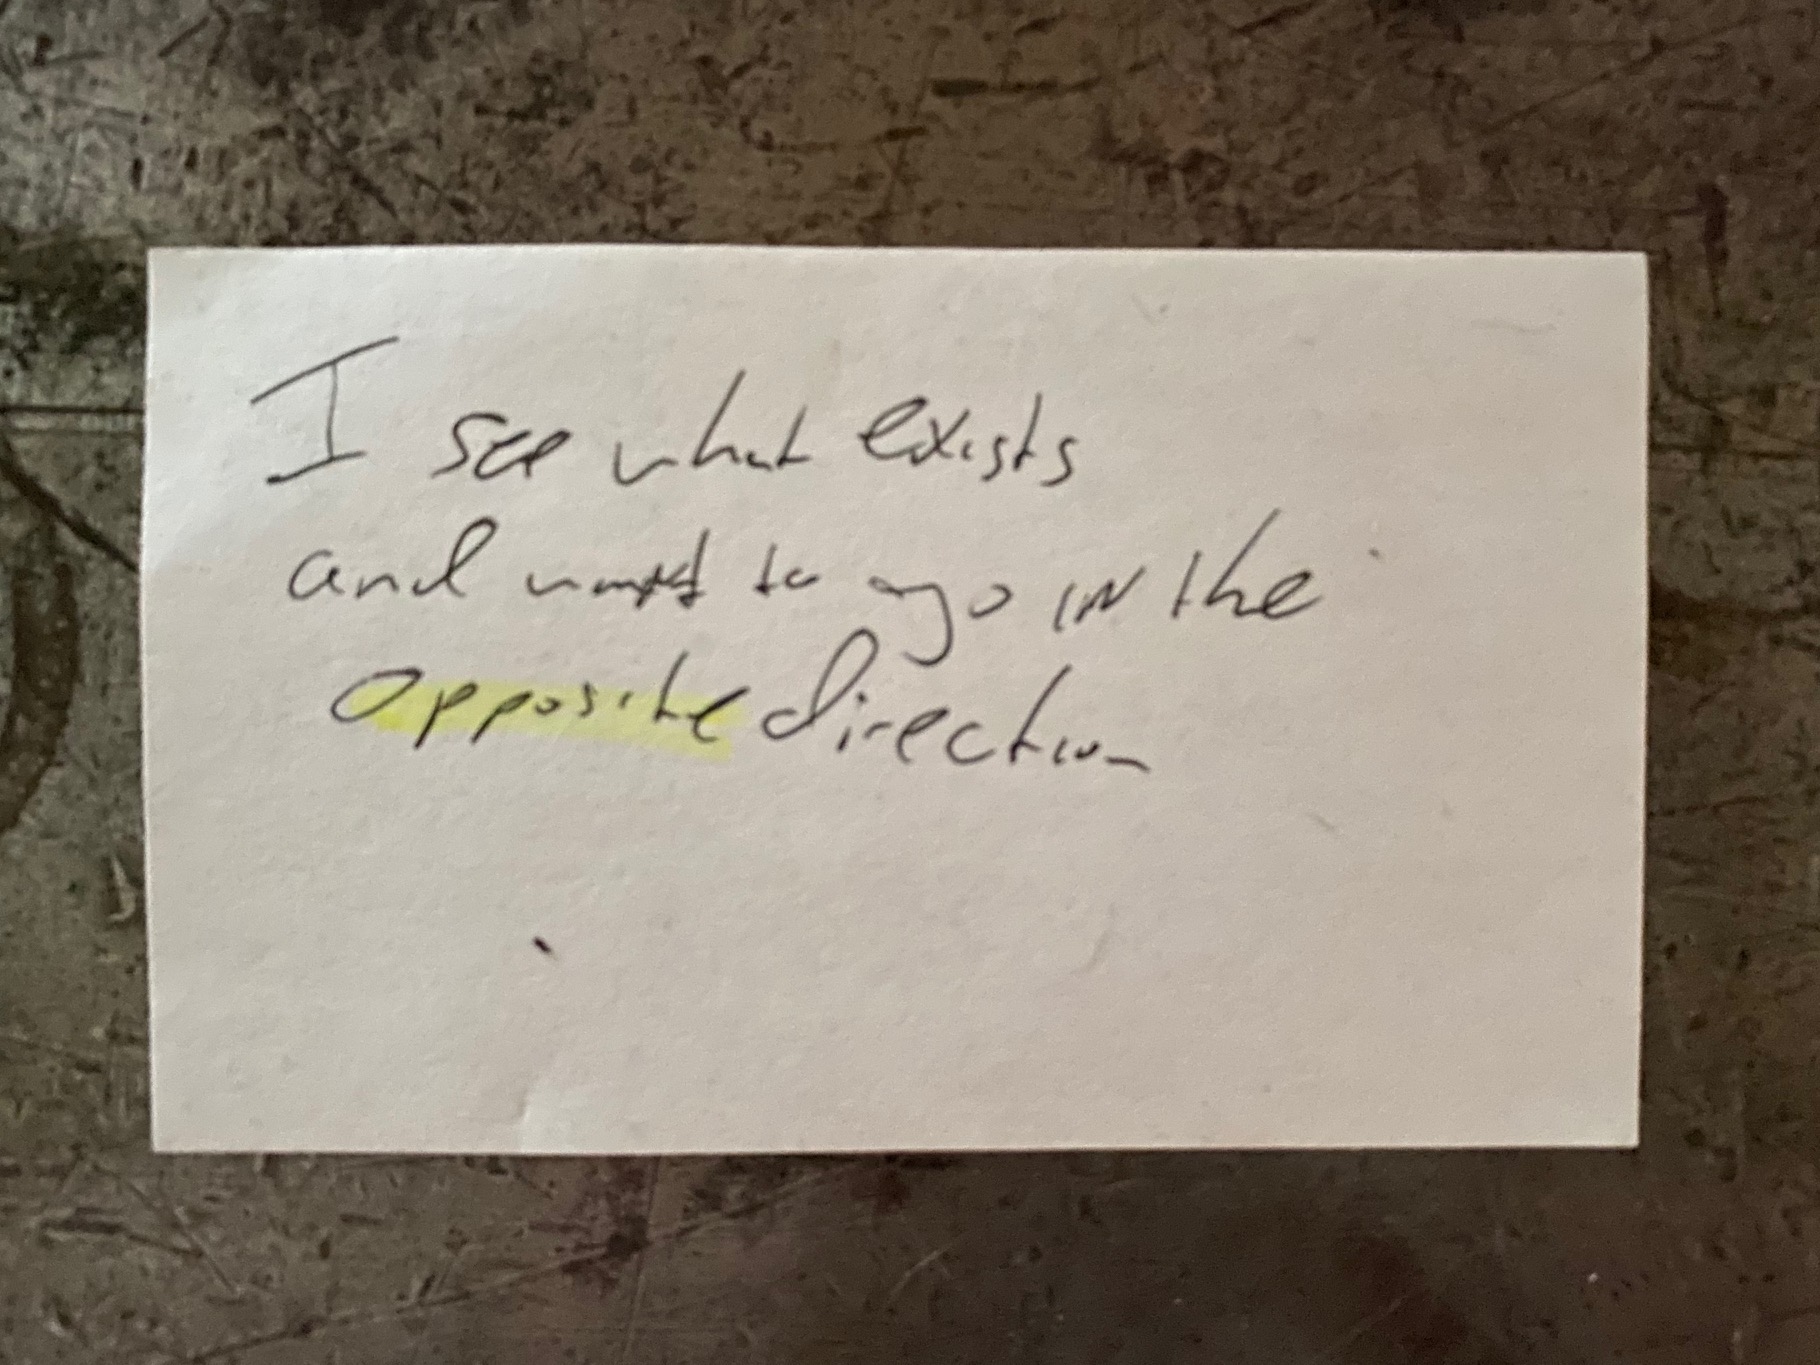 I see what exists
and want to go in the
opposite direction